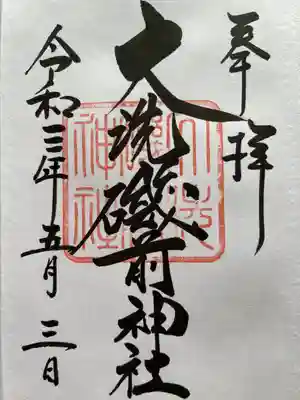 奉拝
大洗磯前神社
令和三年五月三日